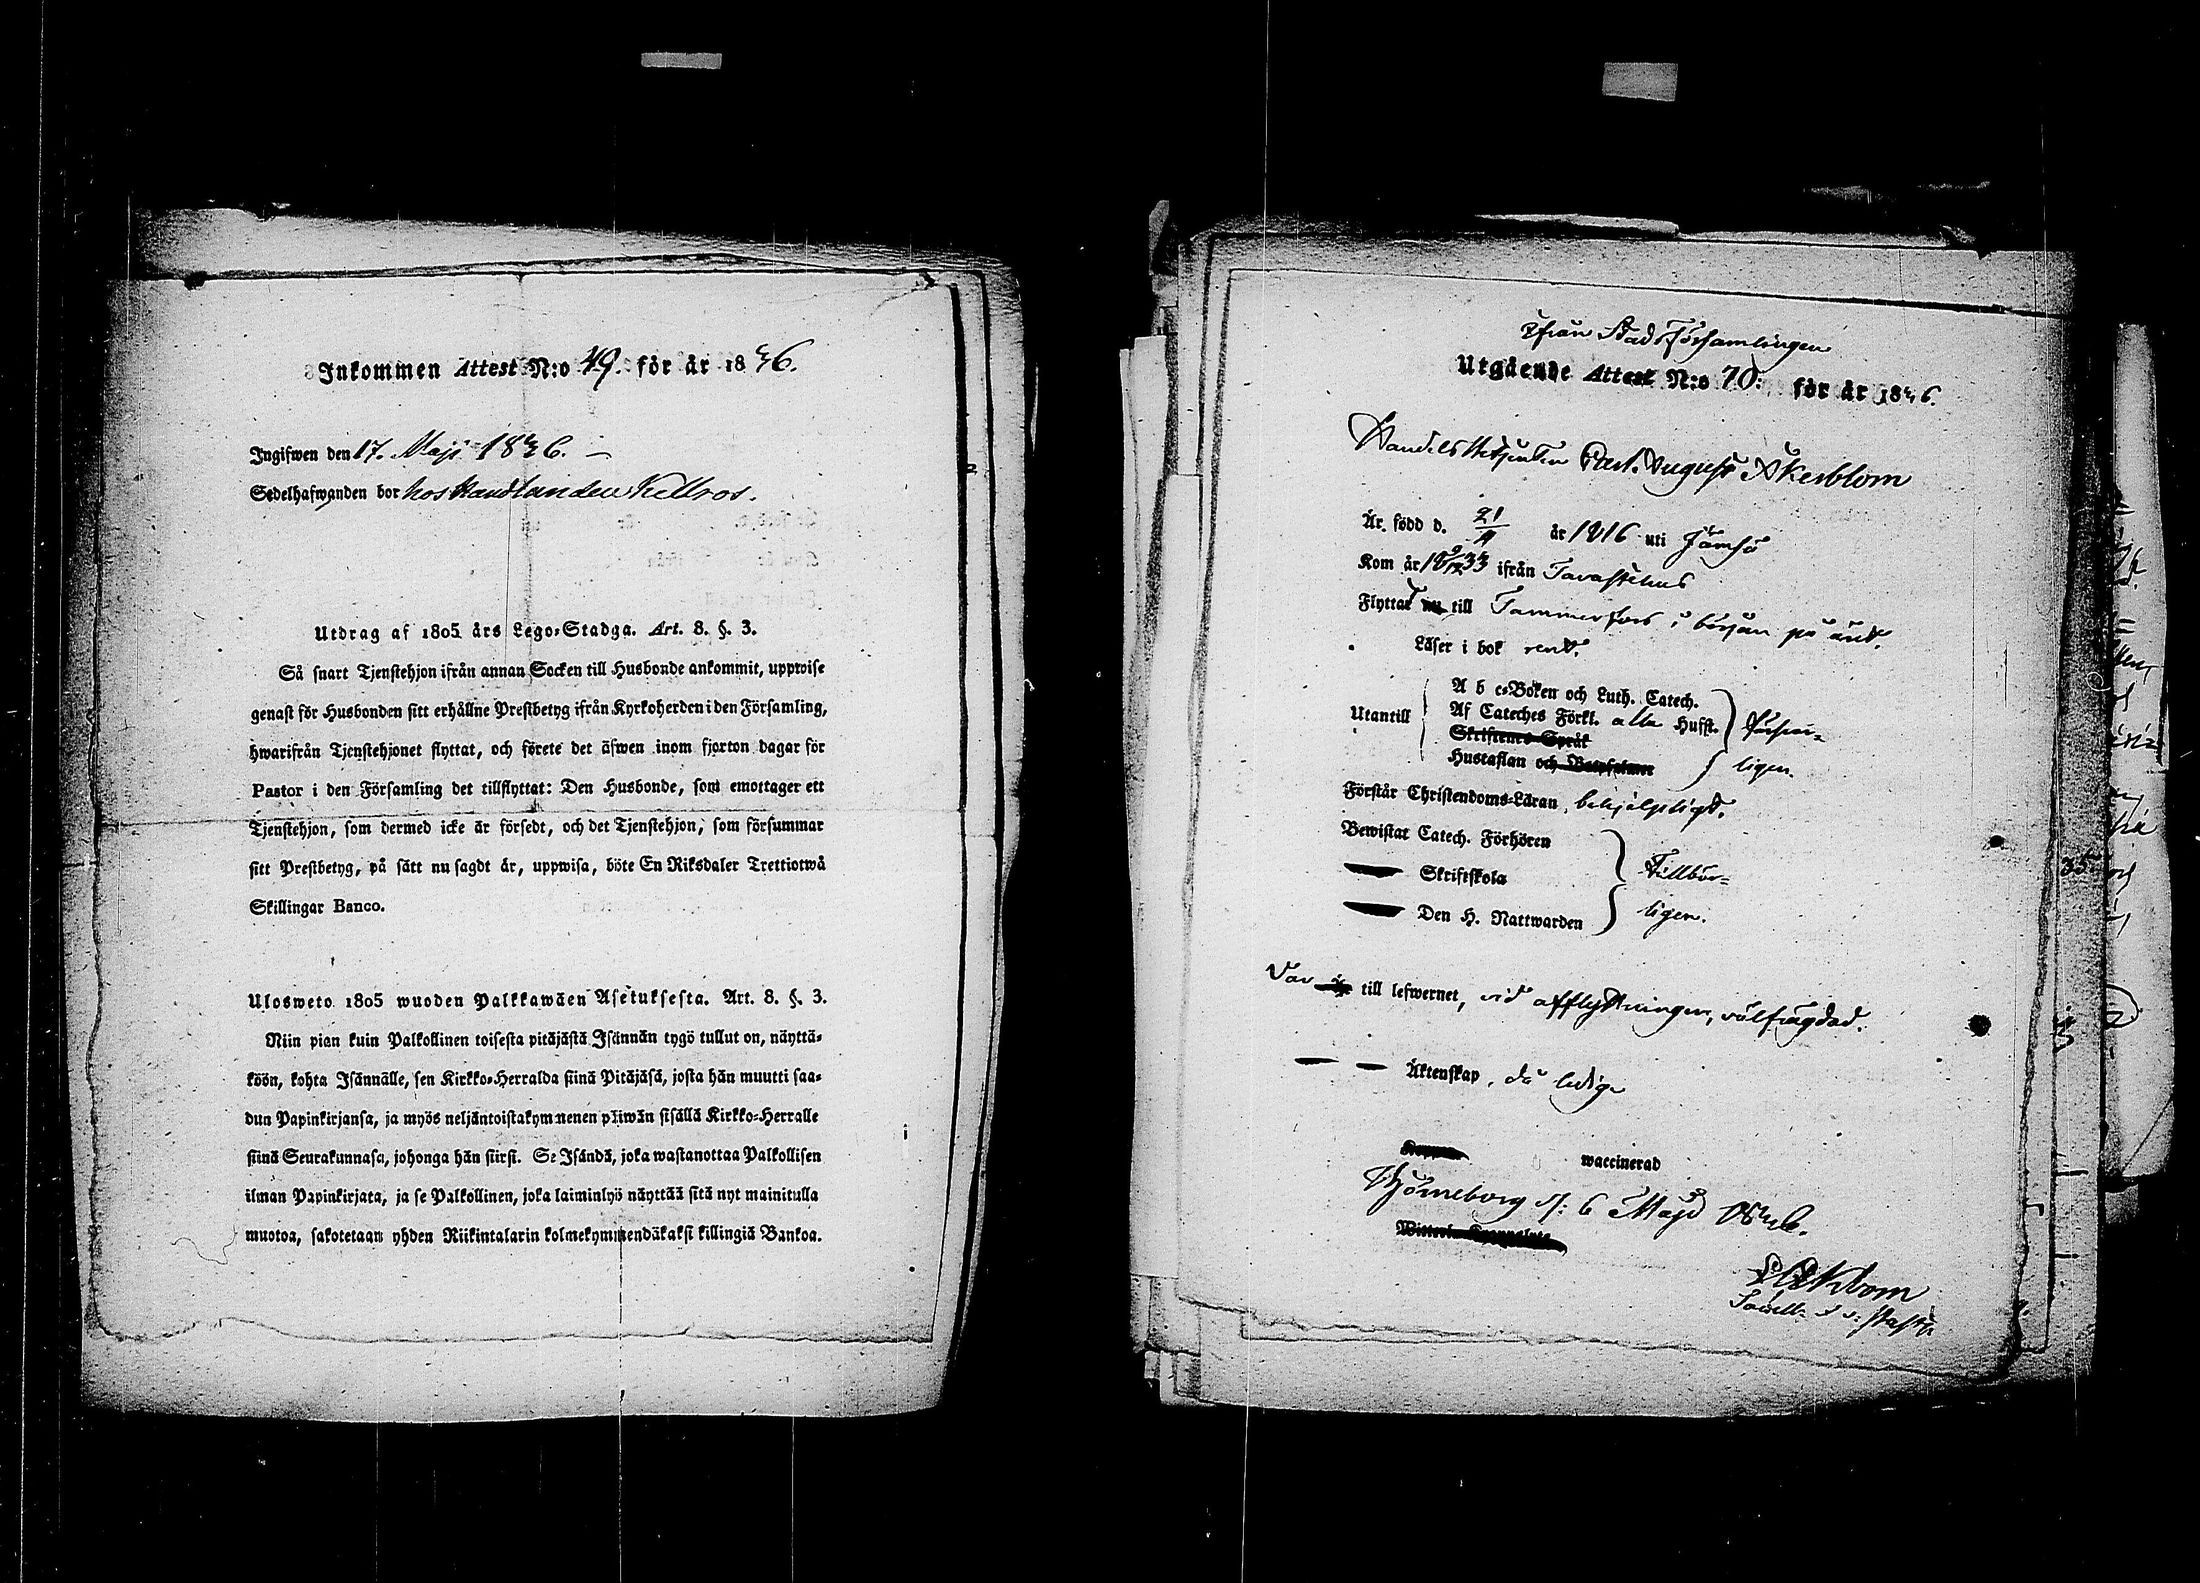 Inkommen Attest N:o 49. för år 1846.
Ingifwen den 17. Maji 1846. –
Sedelhafwanden bor hos Handlanden Kellros.
Utdrag af 1805 års Lego-Stadga. Art. 8. §. 3.
Så snart Tjenstehjon ifrån annan Socken till Husbonde ankommit, uppwise
genast för Husbonden sitt erhållne Prestbetyg ifrån Kyrkoherden i den Församling,
hwarifrån Tjenstehjonet flyttat, och förete det äfwen inom fjorton dagar för
Pastor i den Församling det tillflyttat: Den Husbonde, som emottager ett
Tjenstehjon, som dermed icke är försedt, och det Tjenstehjon, som försummar
sitt Prestbetyg, på sätt nu sagdt är, uppwisa, böte En Riksdaler Trettiotwå
Skillingar Banco.
Ulosweto 1805 wuoden Palkkawäen Asetuksesta. Art. 8. §. 3.
Niin pian kuin Palkollinen toisesta pitäjästä Isännän tygö tullut on, näyttä-
köön, kohta Isännälle, sen Kirkko-Herralda siinä Pitäjäsä, josta hän muutti saa-
dun Papinkirjansa, ja myös neljäntoistakymmenen päiwän sisällä Kirkko-Herralle
siinä Seurakunnasa, johonga hän siirsi. Se Isändä, joka wastanottaa Palkollisen
ilman Papinkirjata, ja se Palkollinen, joka laiminlyö näyttää sitä nyt mainitulla
muotoa, sakotetaan yhden Riikintalarin kolmekymmendäkaksi killingiä Bankoa.
Ifrån Stads Församlingen
Utgående Attest N:o 70: för år 1846.
Handels Betjenten Carl August Åkerblom
Är född d. 21/4 år 1816 uti Jämsä
Kom år 18 33 ifrån Tavastehus
Flyttat nu till Tammerfors i början på året.
Läser i bok rent.
A b c-Boken och Luth. Catech.
Utantill Af Cateches Förkl. alla Hufst. Försvar-
Skriftenes Språk
Hustaflan och ligen.
Förstår Christendoms-Läran, behjelpligt.
Bewistat Catech. Förhören
Skriftskola Tillbör-
Den H. Nattwarden ligen.
Var till lefwernet, vid afflyttningen, välfrägdad.
Äktenskap, då ledig
waccinerad
Björneborg d: 6 Maji 1846.